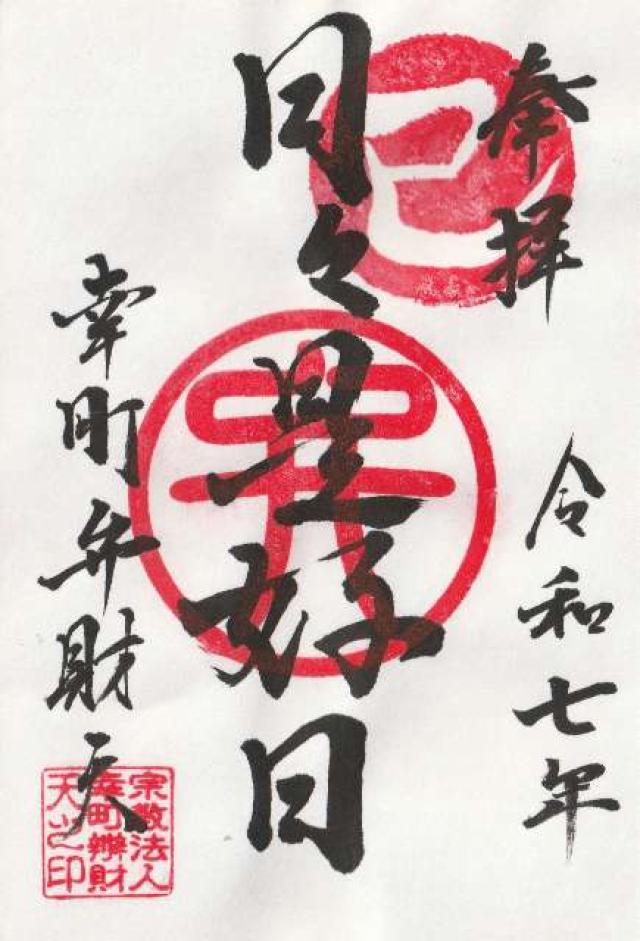 奉拝
令和七年
巳
日々是好日
弁
幸町弁財天
宗教法人
幸町辨財
天之印